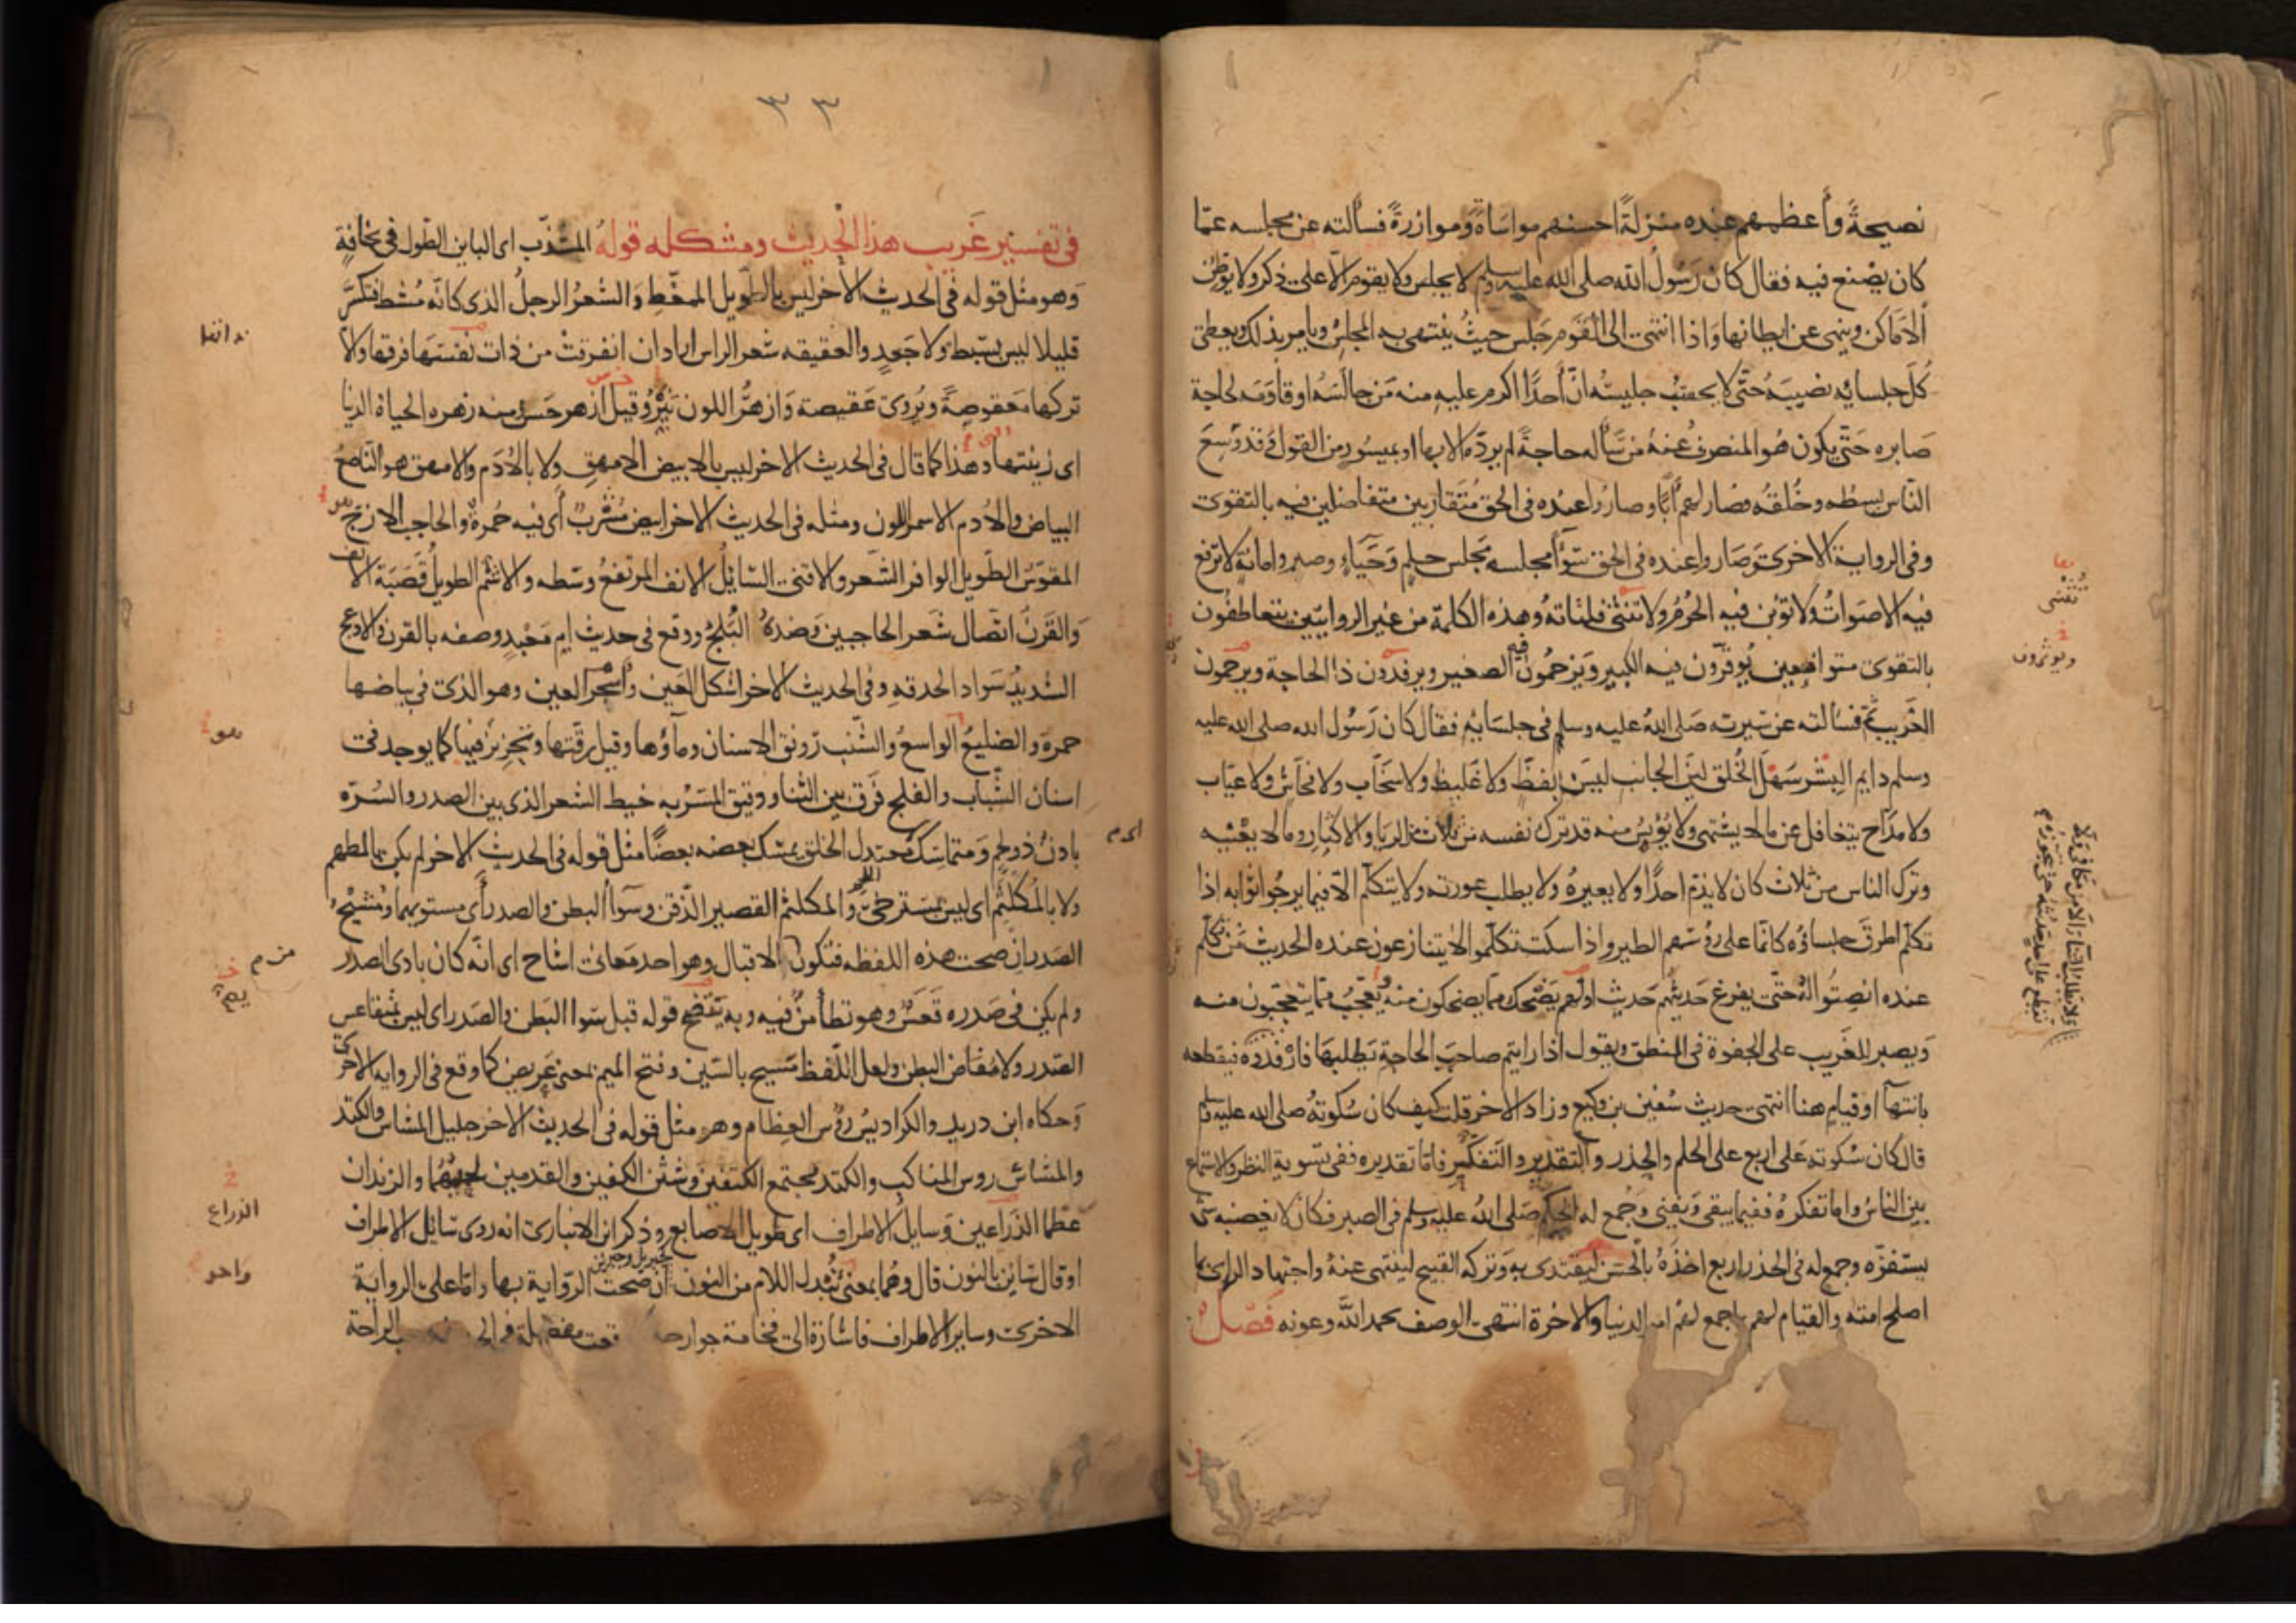 نصيحةً وأعظمهم عنده منزلةً احسنهم مواساةً وموازرةً فسألته عن مجلسه عمّا
كان يصنع فيه فقال كان رَسُولُ الله صلى الله عليه وسلم لا يجلس ولا يقوم الّا على ذكر ولا يوطن
الاماكن وينهى عن ايطانها واذا انتهى الى القوم جلس حيثُ ينتهى به المجلس ويامر بذلك ويعطى
كُلّ جلسايه نصيبَهُ حتّى لا يحسب جليسُه انّ أحدًا اكرم عليه منه مَن جالسَهُ او قاومَه لحاجة
صابره حتّى يكون هُو المنصرفُ عنهُ من سَأله حاجةً لم يردّه الا بها او بميسُور من القول قد وَسِعَ
النّاس بسطُه وخُلقُه فصار لهم أبًا وصارُوا عنده فى الحق مُتقاربين متفاضلين فيه بالتقوى
وفى الرواية الاخرى وَصَاروا عنده فى الحق سوآً مجلسه مجلس حلمٍ وَحَيَاءٍ وصبر وامانة لا ترفع
فيه الاصواتُ ولا تؤبن فيه الحُرُمُ ولا تنثى فلتاته وهذه الكلمة من غير الروايتين يتعاطفُون
بالتقوى متواضعين يُوقّرون فيه الكبير ويَرْحمُون فيه الصغير ويرفدُون ذا الحاجة ويرحمون
الغَريب فسألته عن سيرته صَلى اللهُ عليه وسلم فى جلسَايه فقال كان رَسُول الله صلى الله عليه
وسلم دايم البِشْر سَهْلَ الخُلق ليّن الجانب ليسَ بفظّ ولا غَليظ ولا سخّاب ولا فحّاش ولا عيّاب
ولا مدّاح يتغافل عن ما لا يشتهى ولا يُؤيس منه قد ترك نفسه من ثلاث من الريا والاكثار وما لا يعنيه
وترك الناس من ثلاث كان لا يذمّ احدًا ولا يعيرهُ ولا يطلب عورته ولا يتكلّم الّا فيما يرجُوا ثوابه اذا
تكلّم اطرق جلساؤُه كانّما على رؤُسهم الطير واذا سكت تكلّموا لا يتنازعون عنده الحديث مَن تكلم
عنده انصتُوا لهُ حتّى يفرغ حَديثُهم حَديث اولهم يضْحك مما يضحكون منهُ ويعجبُ ممّا يتعجّبون منه
وَيصبر للغريب على الجفوة فى المنطق ويقول اذا رايتم صاحبَ الحاجة يَطلبهَا فارفدُوه فيقطعه
بانتهآ او قيامٍ هنا انتهى حديث سُفين بن وكيع وزاد الاخر قلت كيف كان سُكوتهُ صلى الله عليه وسلم
قال كان سُكوته عَلى اربع على الحلم والحذر والتقدير والتفكّر فامّا تقديره ففى تسوية النظر والاستماع
بين الناسِ واما تفكرهُ ففيما يبقى وَيفنى وَجُمع له الحلم صَلى اللهُ عليه وسلم فى الصبر فكان لا يغضبه شى
يستفزّه وجمع له فى الحذر اربع اخذُهُ بالحسن ليقتدى به وَتركه القبيح لينتهى عنهُ واجتهاد الراى بما
اصلح امته والقيام لهم بما جمع لهم امر الدنيا والاخرة انتهى الوصف بحمد اللَّه وعونه فَصْلٌ
ويوثرون
٣٣
فى تفسير غَريب هذا الحديث ومشكله قولهُ المشذّب اى الباين الطول فى نحافةٍ
وَهو مثل قوله فى الحديث الاخر ليس بالطويل الممغّط وَالشعْرُ الرجلُ الذى كانّه مُشط فتكسّر
قليلا ليس بسَبط ولا جَعدٍ والعقيقه شعر الراس اراد ان انفرقتْ من ذات نفسهَا فرقها والا
تركها مَعقوصةً ويُروى عَقيصته وَازهرُ اللون نَيّرهُ وقيل ازهر حَسن ومنه زهره الحياة الدنيا
اى زينتها وهذا كما قال فى الحديث الاخر ليس بالابيض الامهق ولا بالادَم والامهق هو النّاصعُ
البياض والادم الاسمر اللون ومثله فى الحديث الاخر ابيض مُشْرَبٌ أى فيه حُمرةٌ والحاجب الازجّ
المقوّس الطَويل الوافر الشّعر والاقنى السّائلُ الانف المرتفعُ وسَطه والاشمّ الطويلُ قَصَبَة الانف
والقَرَن اتّصال شَعر الحاجبين وَضدهُ البَلج ووقع فى حديث امّ مَعْبدٍ وصفه بالقرن والادعج
الشديدُ سَواد الحدقه وفى الحديث الاخر اشكل العَين وأسجر العين وهو الذى فى بياضها
حمرة والضليعُ الواسعُ والشّنب رَونق الاسنان وماؤها وقيل رقّتها وتحزيز فيها كما يوجد فى
اسنان الشّباب والفلج فَرق بين الثنايا ودقيق المسْربه خيط الشعر الذى بين الصدر والسُرّة
بادنٌ ذو لحمٍ ومتماسك مُعتدل الخلق يمسك بعضه بعضًا مثل قوله فى الحديث الاخر لم يكن بالمطهم
ولا بالمُكلثم اى ليس بمسترخى اللحم والمكلثم القصير الذّقن وسَوآ البطن والصدر أى مستويهما ومُشيح
الصَدر ان صحت هذه اللفظه فتكون من الاقبال وهو احد معانى اشاح اى انّه كان بادى الصدر
ولم يكن فى صَدره قَعَسٌ وهو تطأمنٌ فيه وبه يتّضح قوله قبل سَوا البَطن والصَدر اى ليس بمتقاعس
الصَدر ولا مُفَاض البطن ولعل اللّفظ مَسيح بالسّين وفتح الميم بمعنى عَريض كما وقع فى الرواية الاخرى
وَحكاه ابن دريد والكراديسُ رؤُس العِظام وهو مثل قوله فى الحديث الاخر جليل المشاش والكتد
والمشاش روس المناكب والكتد مجتمع الكتفين وَشثن الكفين والقدمين لحيمهُما والزندان
عظما الذّراعين وَسايل الاطراف اى طويل الاصابع وذكر ابن الانبارى انه روى سَايل الاطراف
او قال سَاين بالنون قال وهُما بمعنى تُبدل اللام من النون ان صَحّت الرّواية بها وامّا على الرواية
الاخرى وساير الاطراف فاشارة الى فخامة جوارحه كما وقعت مفصّلة فى الحديث ورحب الراحة
الذراع